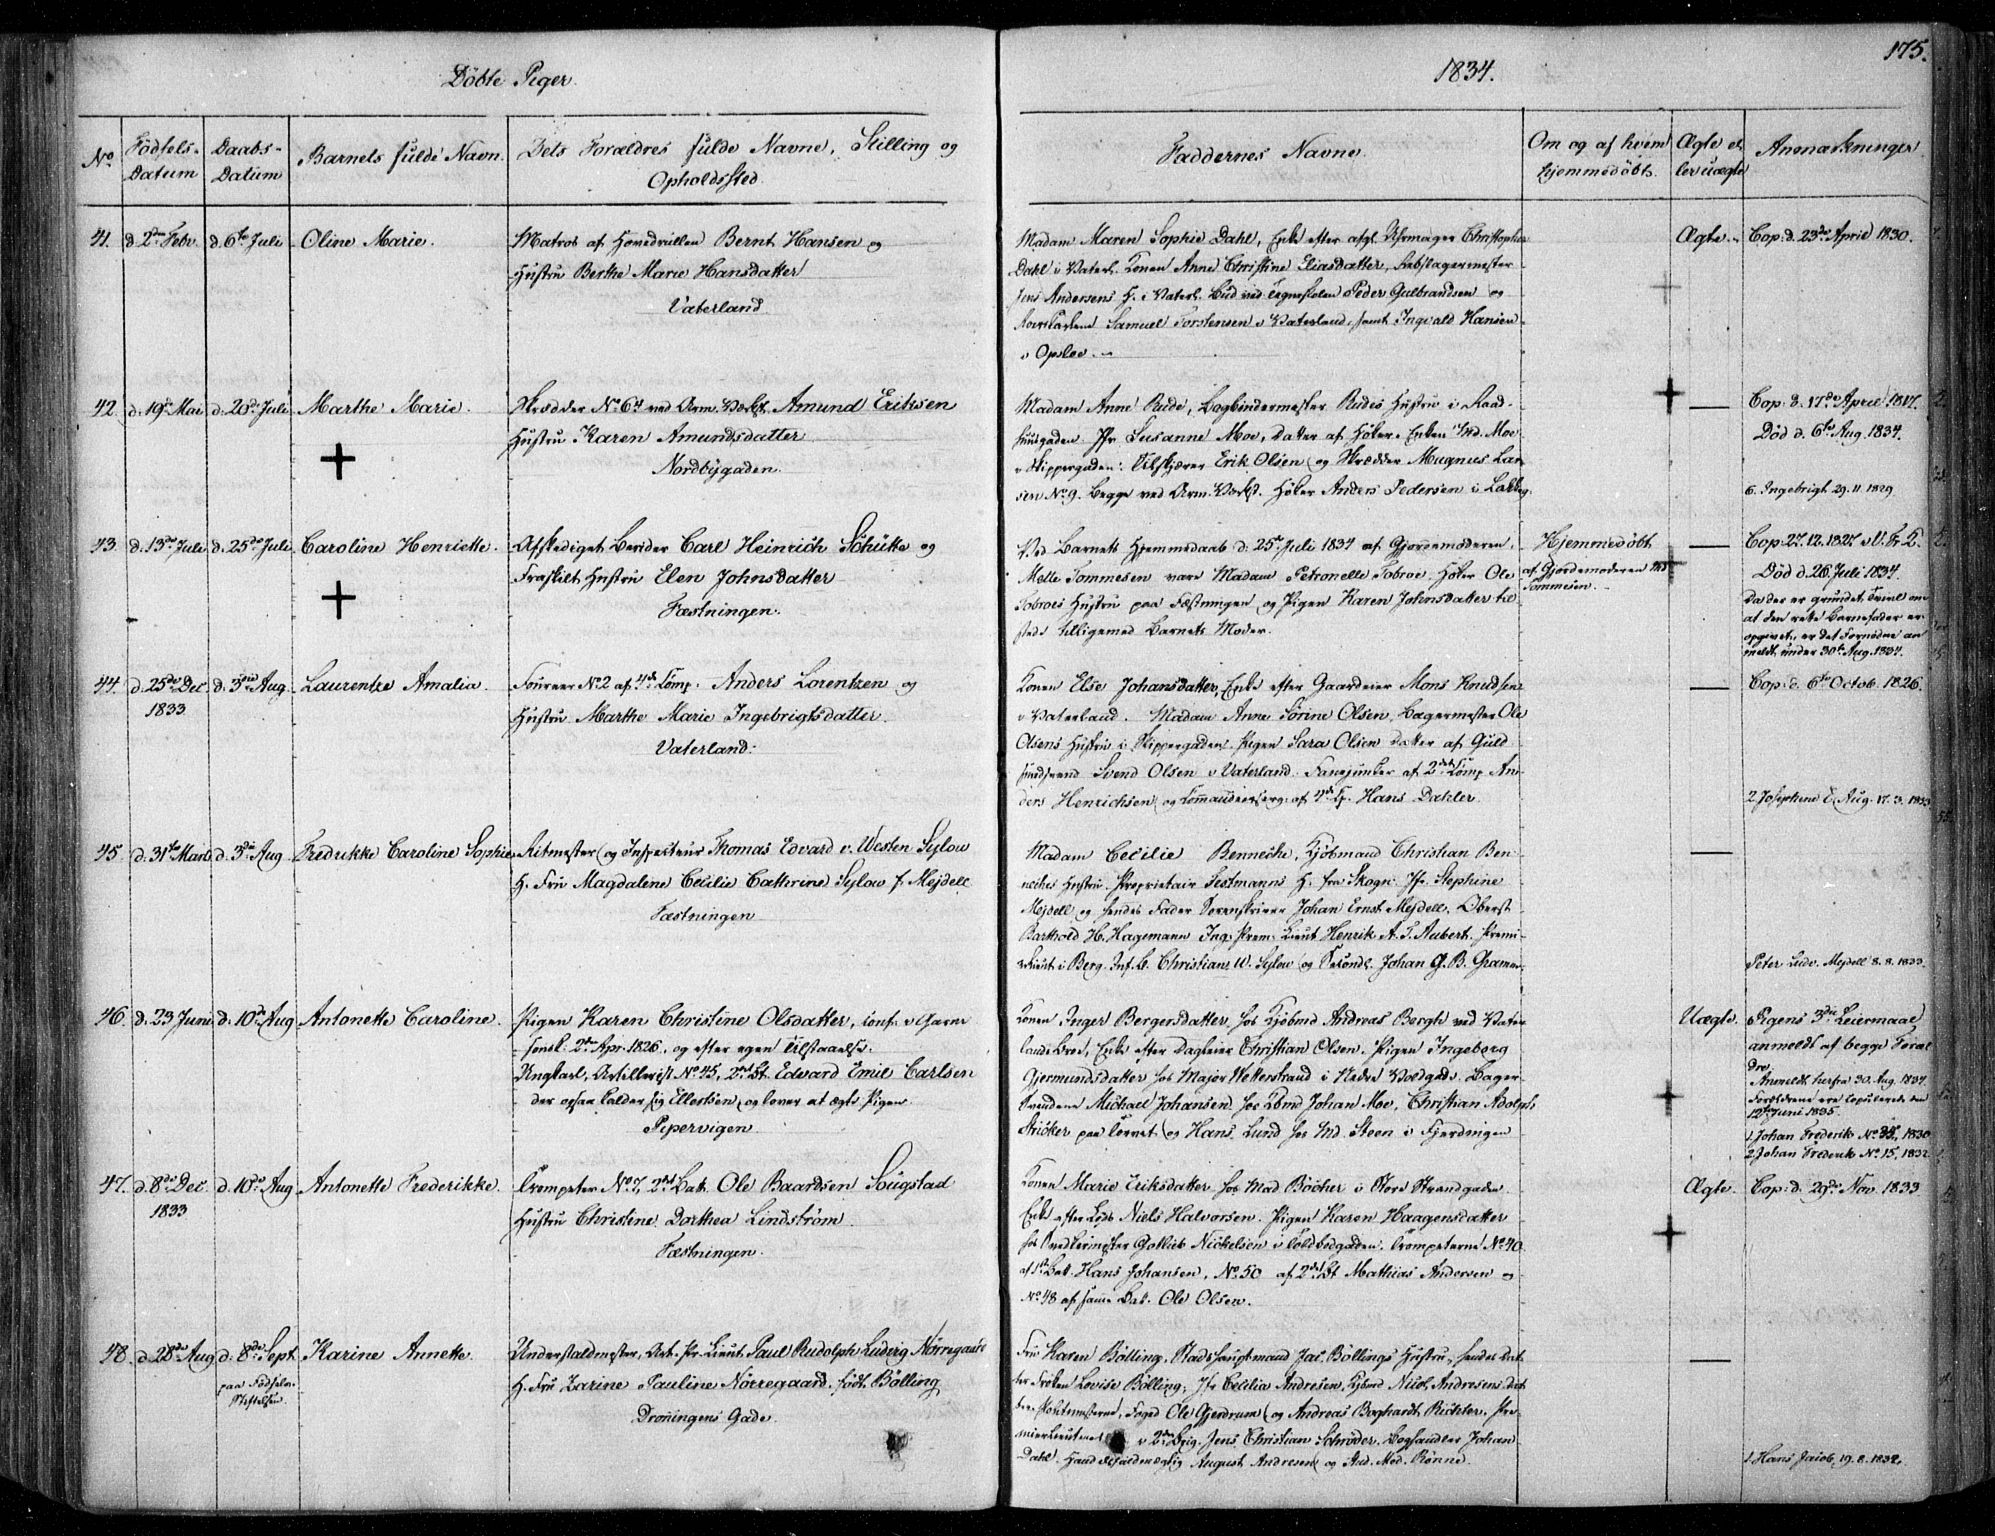 Döbte Piger.
1834.
175.
No.
Födsels-
Datum
Daabs-
Datum
Barnets fulde Navn.
Dets Forældres fulde Navne, Stilling og
Opholdssted.
Faddernes Navne.
Om og af hvem
hjemmedöbt.
Ægte el-
ler uægte
Anmærkninger
41.
d. 2den Febr.
d. 6te Juli
Oline Marie.
Matros af Hovedrullen Bernt Hansen og
Hustru Berthe Marie Hansdatter
Vaterland
Madam Maren Sophie Dahl, Enke efter afgl. Uhrmager Christopher
Dahl i Vaterl. Konen Anne Christine Eliasdatter, Rebslagermester
Jens Andersens H. i Vaterl. Bud ved Tegneskolen Peder Gulbrandsen og
Samuel Torstensen i Vaterland, samt Ingvald Hansen
i Opsloe.
Ægte
Cop: d. 23de April 1830.
42.
d. 19de Mai
d. 20de Juli
Marthe Marie.
Skrædder No 64 ved Arm. Værkst. Amund Eriksen
Hustru Karen Amundsdatter
Nordbygaden.
Madam Anne Rude, Bogbindermester Rudes Hustru i Raad-
huusgaden. Jfr Susanne Moe, Datter af Höker-Enken Md. Moe
i Skippergaden. Tilskjærer Erik Olsen og Skrædder Magnus Lar-
sen No 9. begge ved Arm. Værkst. Höker Anders Pedersen i Lakkeg.
Cop: d. 17de April 1817.
Död d. 6te Aug. 1834.
6. Ingebrigt 29.11.1829
43.
d. 13de Juli
d. 25de Juli
Caroline Henriette.
Afskediget Berider Carl Heinrich Schütte og
Fraskilt Hustru Elen Johnsdatter
Fæstningen.
Ved Barnets Hjemmedaab d. 25de Juli 1834 af Gjordemoderen
Mette Tommesen vare Madam Petronelle Tobroe, Höker Ole
Tobroes Hustru paa Fæstningen og Pigen Karen Johnsdatter til-
stede tilligemed Barnets Moder.
Hjemmedöbt
af Gjordemoderen Md
Tommesen.
Cop: 27.12.1827 i V. Fr. K.
Död d. 26 Juli 1834.
Da der er grundet Tvivl om
at den rette Barnefader er
opgivet, er det Fornödne an-
meldt under 30te Aug. 1834.
44.
d. 25de Dec.
1833
d. 3die Aug.
Laurentze Amalia.
Foureer No 2 af 4de Komp. Anders Lorentzen og
Hustru Marthe Marie Ingebrigtsdatter.
Vaterland.
Konen Else Johansdatter, Enke efter Gaardeier Mons Knudsen
i Vaterland. Madam Anne Sörine Olsen, Bagermester Ole
Olsens Hustru i Skippergaden. Pigen Sara Olsen Datter af Guld-
smedsvend Svend Olsen i Vaterland. Fanejunker af 2det Komp An-
ders Henrichsen og Commandeersergt. af 4de K. Hans Dahler.
Cop: d. 6te Octob. 1826.
2 Josephine E. Aug. 17.3.1833
45.
d. 31te Marts
d. 3die Aug.
Fredrikke Caroline Sophie
Ritmester og Inspecteur Thomas Edvard v. Westen Sylow
H. Fru Magdalene Cecilie Cathrine Sylow f. Mejdell
Fæstningen
Madam Cecilie Bennecke, Kjöbmand Christian Ben-
neckes Hustru. Proprietair Sestmanns H. fra Skogn. Jfr. Stephine
Mejdell og hendes Fader Sorenskriver Johan Ernst Mejdell. Oberst
Barthold H. Hagemann Ing. Prem: Lieut Henrik A. T. Aubert. Premi-
Lieut i Berg. Inf. B. Christian W. Sylow og Sekondl. Johan G. B. Gramer.
Peter Ludv. Mejdell 8.8.1833
46.
d. 23 Juni
d. 10de Aug
Antonette Caroline.
Pigen Karen Christine Olsdatter, conf. i Garni-
sonsk. 2den Apr. 1826, og efter egen Tilstaaelse
Ungkarl, Artillerist No 45, 2det Bt. Edvard Emil Carlsen
der ogsaa kalder sig Ellertsen, og lover at ægte Pigen.
Pipervigen.
Konen Inger Bergersdatter hos Kjöbmd Andreas Bergh ved Vater-
lands Broe, Enke efter Dagleier Christian Olsen. Pigen Ingeborg
Gjermundsdatter hos Major Wetterstrand i Nedre Voldgade. Bager-
svendene Michael Johansen hos Kbmd Johan Moe, Christian Adolph
Stricker paa Torvet og Hans Lund hos Md. Steen i Fjerdingen
Uægte.
Pigens 3die Leiermaal
anmeldt af begge Foræl-
dre.
Anmeldt herfra 30. Aug. 1834.
Forældrene ere copulerede den
12te Juni 1835.
1 Johan Frederik No 35, 1830
2 Johan Frederik No 15, 1832
47.
d. 8de Dec
1833
d. 10de Aug
Antonette Frederikke.
Trompeter No 7, 2det Bat. Ole Baardsen Sougstad
Hustru Christine Dorthea Lindström.
Fæstningen.
Konen Marie Eriksdatter hos Mad Böcher i Store Strandgaden
Enke efter Lods Niels Halvorsen. Pigen Karen Haagensdatter
hos Snedkermester Gotlieb Nickelsen i Toldbodgaden. Trompeterne No 40
af 1ste Bat. Hans Johansen, No. 50 af 2det Bt Mathias Andersen og
No 48 af samme Bat. Ole Olsen.
Ægte.
Cop: d. 29de Nov. 1833
48.
d. 28de Aug
d. 8de Sept.
paa Födsels-
Stiftelsen
Karine Annette.
Understaldmester, Art. Pr. Lieut. Paul Rudolph Ludvig Nörregaard
H. Fru Zarine Pauline Nörregaard, födt Bölling
Dronningens Gade
Fru Karen Bölling, Stadshauptmand Jac. Böllings Hustru, hendes Dat-
ter Fröken Lovise Bölling, Jfr Cecilia Andresen, Kjbmd Nicol. Andresens Dat-
ter. Foged Ole Gjerdrum og Andreas Boghardt Richter. Pre-
mierlieutenant i 2den Brig. Jens Christian Schröder. Boghandler Johan
Dahl. Handelsfuldmægtig August Andresen og Stud. Med. Rönne.
1. Hans Jacob, 19.8.1832.